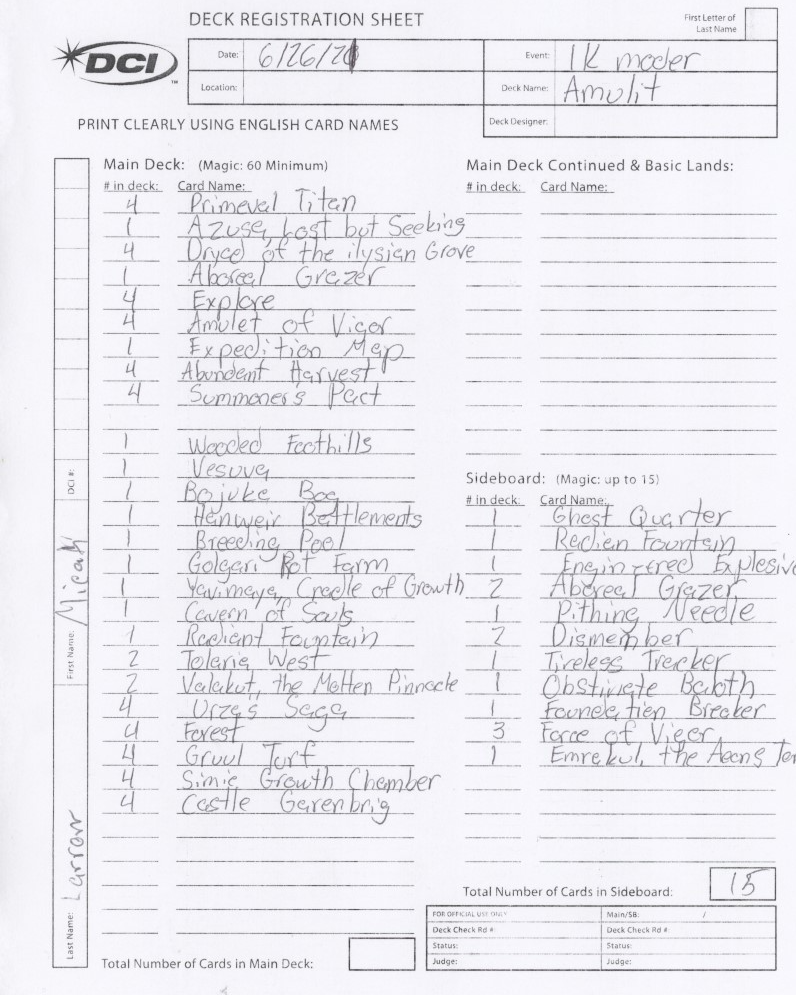 DECK REGISTRATION SHEET
First Letter of
Last Name
DCI
TM
Date: 6/26/21
Event: 1K moder
Location:
Deck Name: Amulit
PRINT CLEARLY USING ENGLISH CARD NAMES
Deck Designer:
Main Deck: (Magic: 60 Minimum)
# in deck: Card Name:
4 Primeval Titan
1 Azusa, Lost but Seeking
4 Dryad of the ilysian Grove
1 Aboreal Grazer
4 Explore
4 Amulet of Vigor
1 Expedition Map
4 Abundent Harvest
4 Summoner's Pact
1 Wooded Foothills
1 Vesuva
1 Bojuka Bog
1 Hanweir Battlements
1 Breeding Pool
1 Golgari Rot Farm
1 Yavimaya, Cradle of Growth
1 Cavern of Souls
1 Radiant Fountain
2 Tolaria West
2 Valakut, the Molten Pinnacle
4 Urza's Saga
4 Forest
4 Gruul Turf
4 Simic Growth Chamber
4 Castle Garenbrig
Total Number of Cards in Main Deck:
Main Deck Continued & Basic Lands:
# in deck: Card Name:
Sideboard: (Magic: up to 15)
# in deck: Card Name:
1 Ghost Quarter
1 Radian Fountain
1 Engineered Explosive
2 Aboreal Grazer
1 Pithing Needle
2 Dismember
1 Tireless Tracker
1 Obstinate Baloth
1 Foundation Breaker
3 Force of Vigor
1 Emrakul, the Aeons Tor
Total Number of Cards in Sideboard: 15
FOR OFFICIAL USE ONLY
Main/SB: /
Deck Check Rd #:
Deck Check Rd #:
Status:
Status:
Judge:
Judge:
DCI #:
First Name: Micah
Last Name: